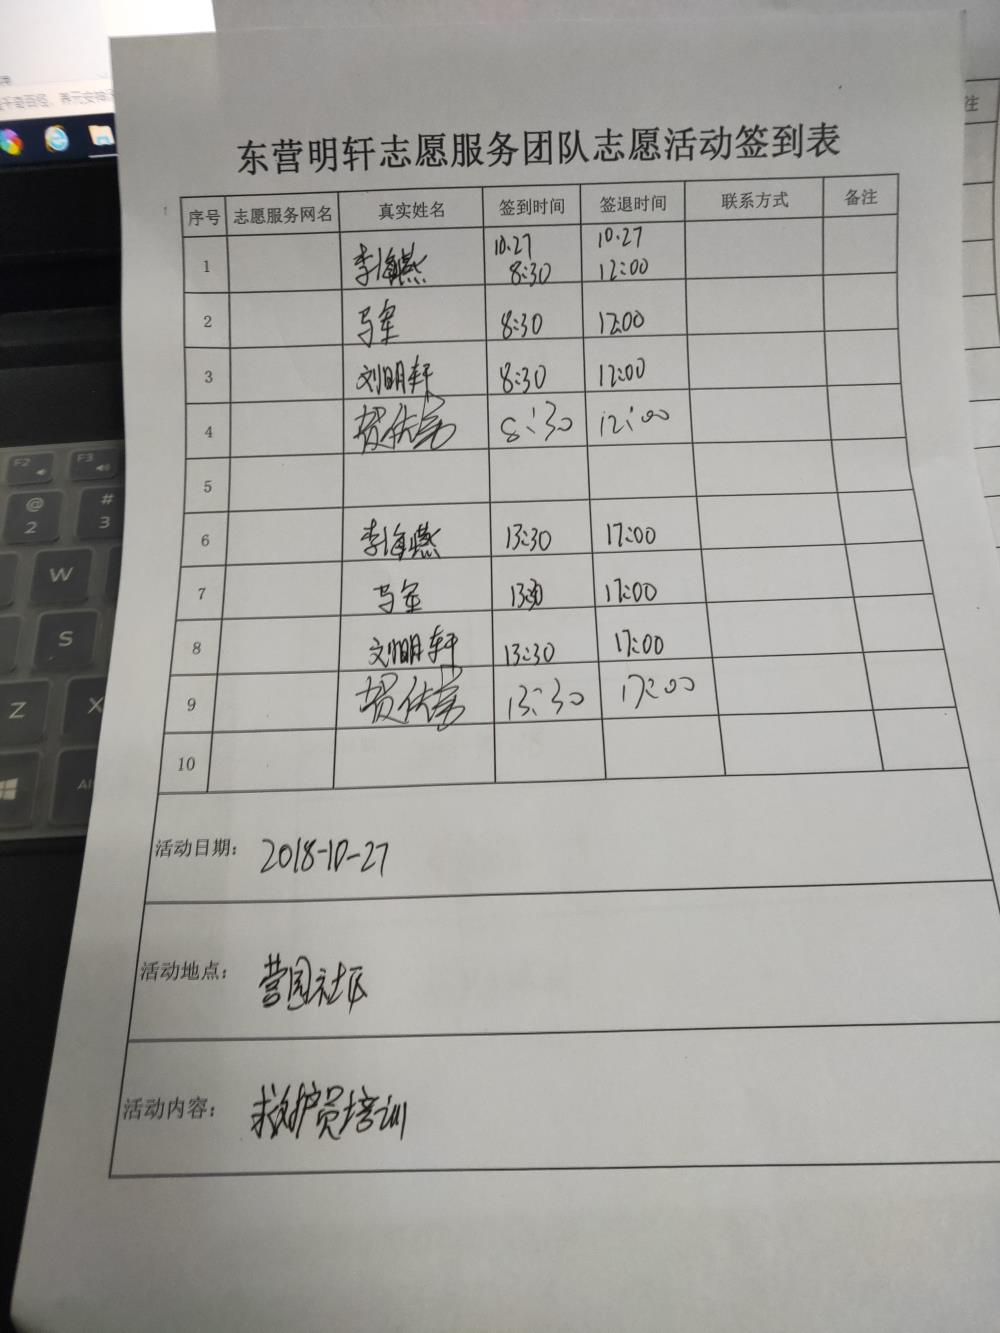 东营明轩志愿服务团队志愿活动签到表
序号 志愿服务网名 真实姓名 签到时间 签退时间 联系方式 备注
1 李海燕 10.27 8:30 10.27 12:00
2 马军 8:30 12:00
3 刘明轩 8:30 12:00
4 贺 8:30 12:00
5
6 李海燕 13:30 17:00
7 马军 13:30 17:00
8 刘明轩 13:30 17:00
9 贺 13:30 17:00
10
活动日期： 2018-10-27
活动地点： 营园社区
活动内容： 救护员培训
注
F2
F3
@
2
#
3
W
S
Z
X